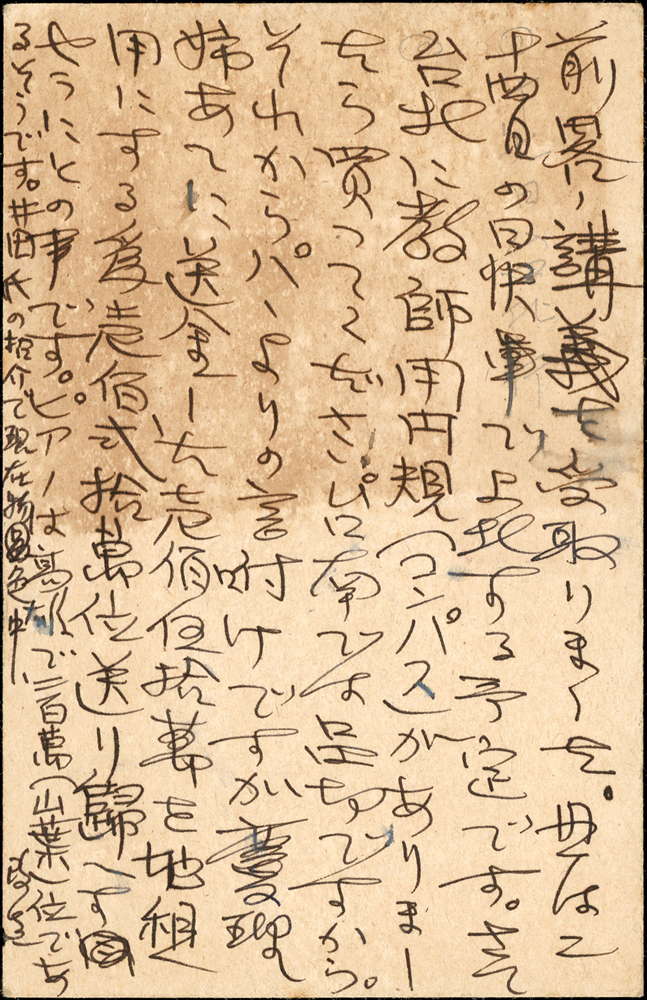 前畧、講義を受取りました。母は二
十四日の日快車で上北する予定です。さて
台北に教師用円規（コンパス）がありまし
たら買ってくださいね。台南では品切ですから。
それからパパよりの言附けですが
姉あてに送金した壱佰伍拾萬を地租
用にする為壱佰弐拾萬位送り歸へす
やうにとの事です。ピアノは高雄で三百萬（山葉）位であ
るそうです。井田氏の招介で現在物色中